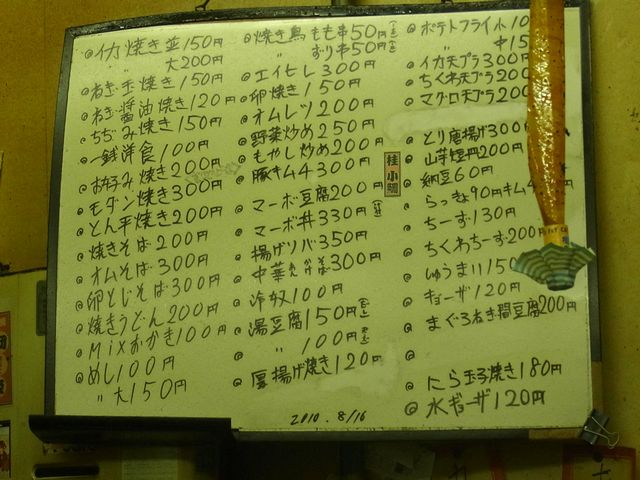 ◎イカ焼き並150円
〃 大200円
◎ねぎ玉焼き150円
◎ねぎ醤油焼き120円
◎ちぢみ焼き150円
◎一銭洋食100円
◎お好み焼き200円
◎モダン焼き300円
◎とん平焼き200円
◎焼きそば200円
◎オムそば300円
◎卵とじそば300円
◎焼きうどん200円
◎Mixおかき100円
◎めし100円
〃大150円
◎焼き鳥もも串50円
〃 ずり串50円
◎エイヒレ300円
◎卵焼き150円
◎オムレツ200円
◎野菜炒め250円
◎もやし炒め200円
◎豚キムチ300円
◎マーボ豆腐200円
◎マーボ丼330円
◎揚げソバ350円
◎中華そば300円
◎冷奴100円
◎湯豆腐150円
◎〃 100円
◎厚揚げ焼き120円
桂小鯛
2010.8/16
◎ポテトフライ小10
〃 中15
◎イカ天プラ300円
◎ちくわ天プラ200
◎マグロ天プラ200
◎とり唐揚げ300
◎山芋短冊200円
◎納豆60円
◎らっきょ90円キム
◎ちーず130円
◎ちくわちーず200
◎しゅうまい150
◎ギョーザ120円
◎まぐろねぎ間豆腐200円
◎
◎たら玉子焼き180円
◎水ギョーザ120円